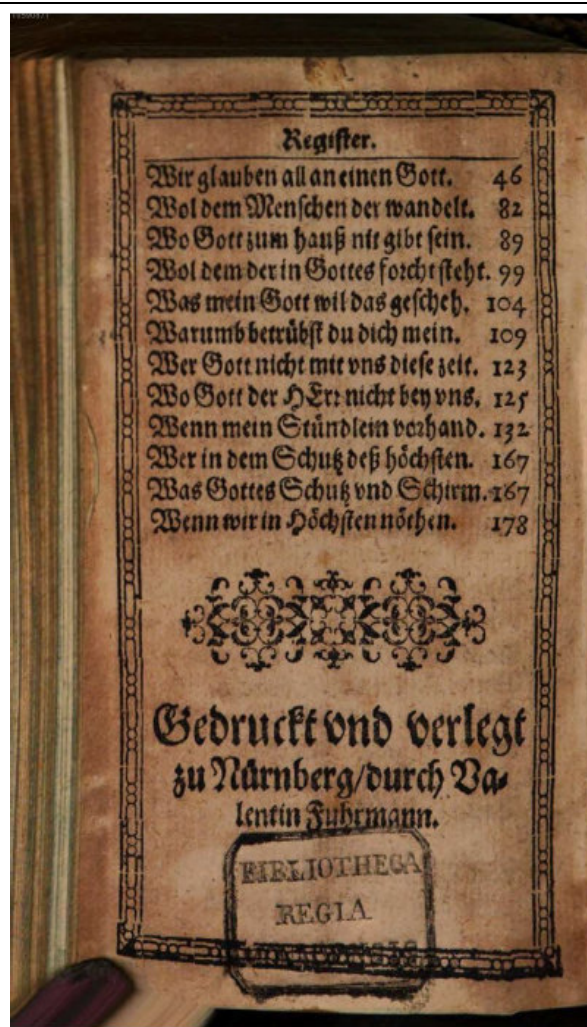 Register.
Wir glauben all an einen Gott. 46
Wol dem Menschen der wandelt. 82
Wo Gott zum hauß nit gibt sein. 89
Wol dem der in Gottes forcht steht. 99
Was mein Gott wil das gescheh. 104
Warumb betrübst du dich mein. 109
Wer Gott nicht mit vns diese zeit. 123
Wo Gott der HErr nicht bey vns. 125
Wenn mein Stündlein vorhand. 132
Wer in dem Schutz deß höchsten. 167
Was Gottes Schutz vnd Schirm. 167
Wenn wir in Höchsten nöthen. 178
Gedruckt vnd verlegt
zu Nürnberg/durch Va-
lentin Fuhrmann.
BIBLIOTHECA
REGIA